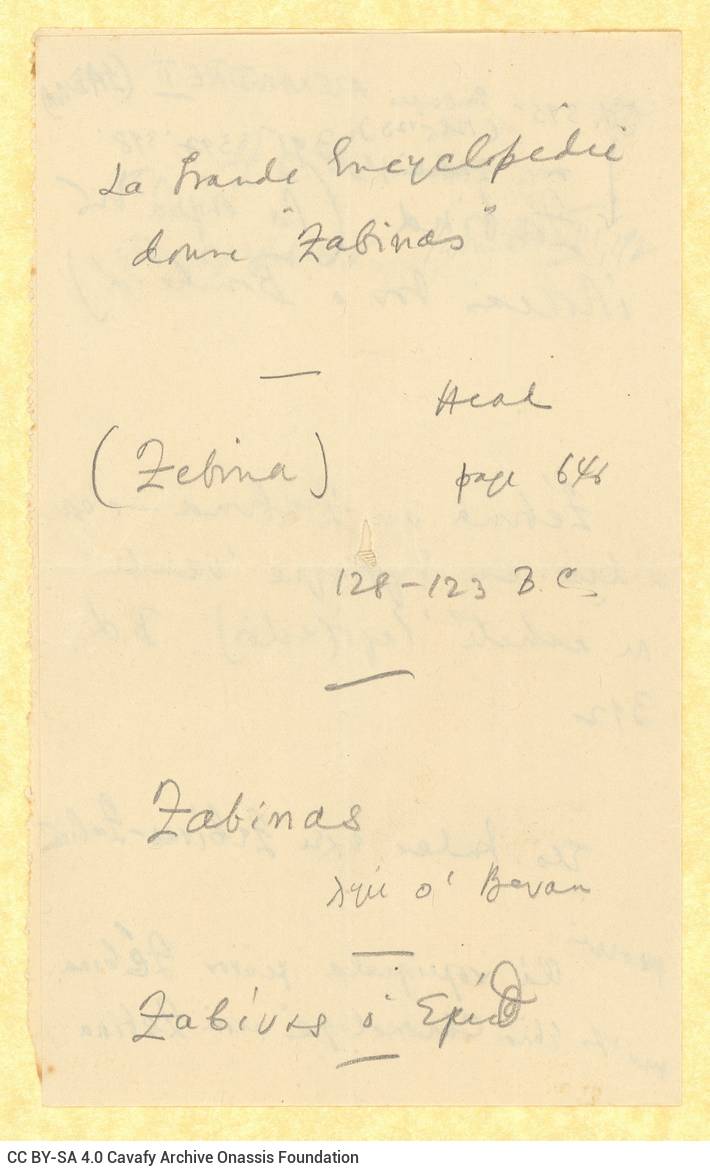 La Grande Encyclopédie
donne "Zabinas"
Head
(Zebina) page 646
128–123 B.C.
Zabinas
λγει ο Bevan
Ζαβίνας ο
CC BY-SA 4.0 Cavafy Archive Onassis Foundation